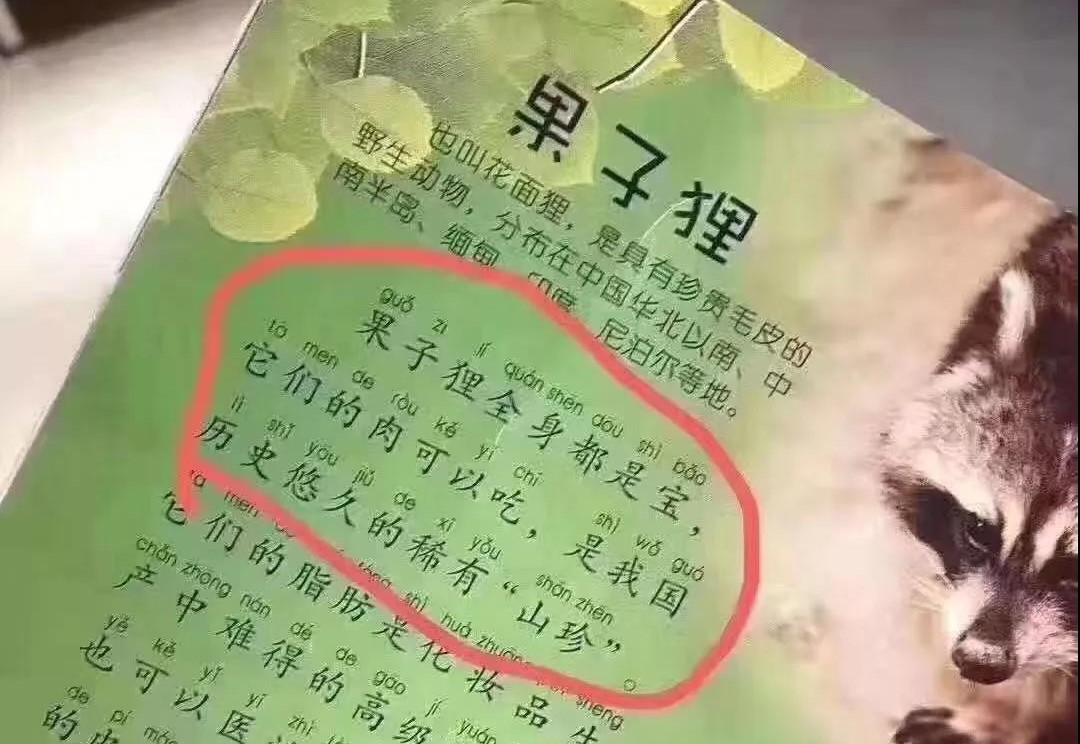 果子狸
也叫花面狸，是具有珍贵毛皮的
野生动物，分布在中国华北以南、中
南半岛、缅甸、印度、尼泊尔等地。
guǒ zi lí quán shēn dōu shì bǎo
果子狸全身都是宝，
tā men de ròu kě yǐ chī shì wǒ guó
它们的肉可以吃，是我国
lì shǐ yōu jiǔ de xī yǒu shān zhēn
历史悠久的稀有“山珍”。
tā men de shì huà zhuāng sheng
它们的脂肪是化妆品生
chǎn zhōng nán dé de gāo jí yuán
产中难得的高级
yě kě yǐ yī zhì
也可以医
de pí máo
的皮